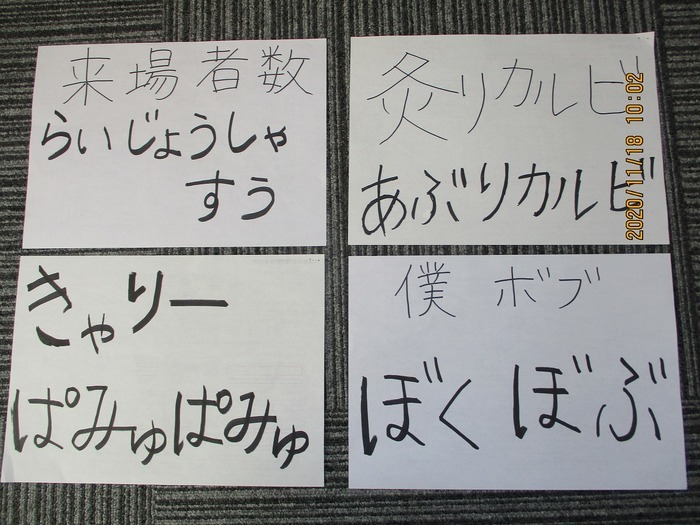 来場者数
らいじょうしゃ
すう
炙りカルビ
あぶりカルビ
きゃりー
ぱみゅぱみゅ
僕 ボブ
ぼく ぼぶ
2020/11/18 10:02